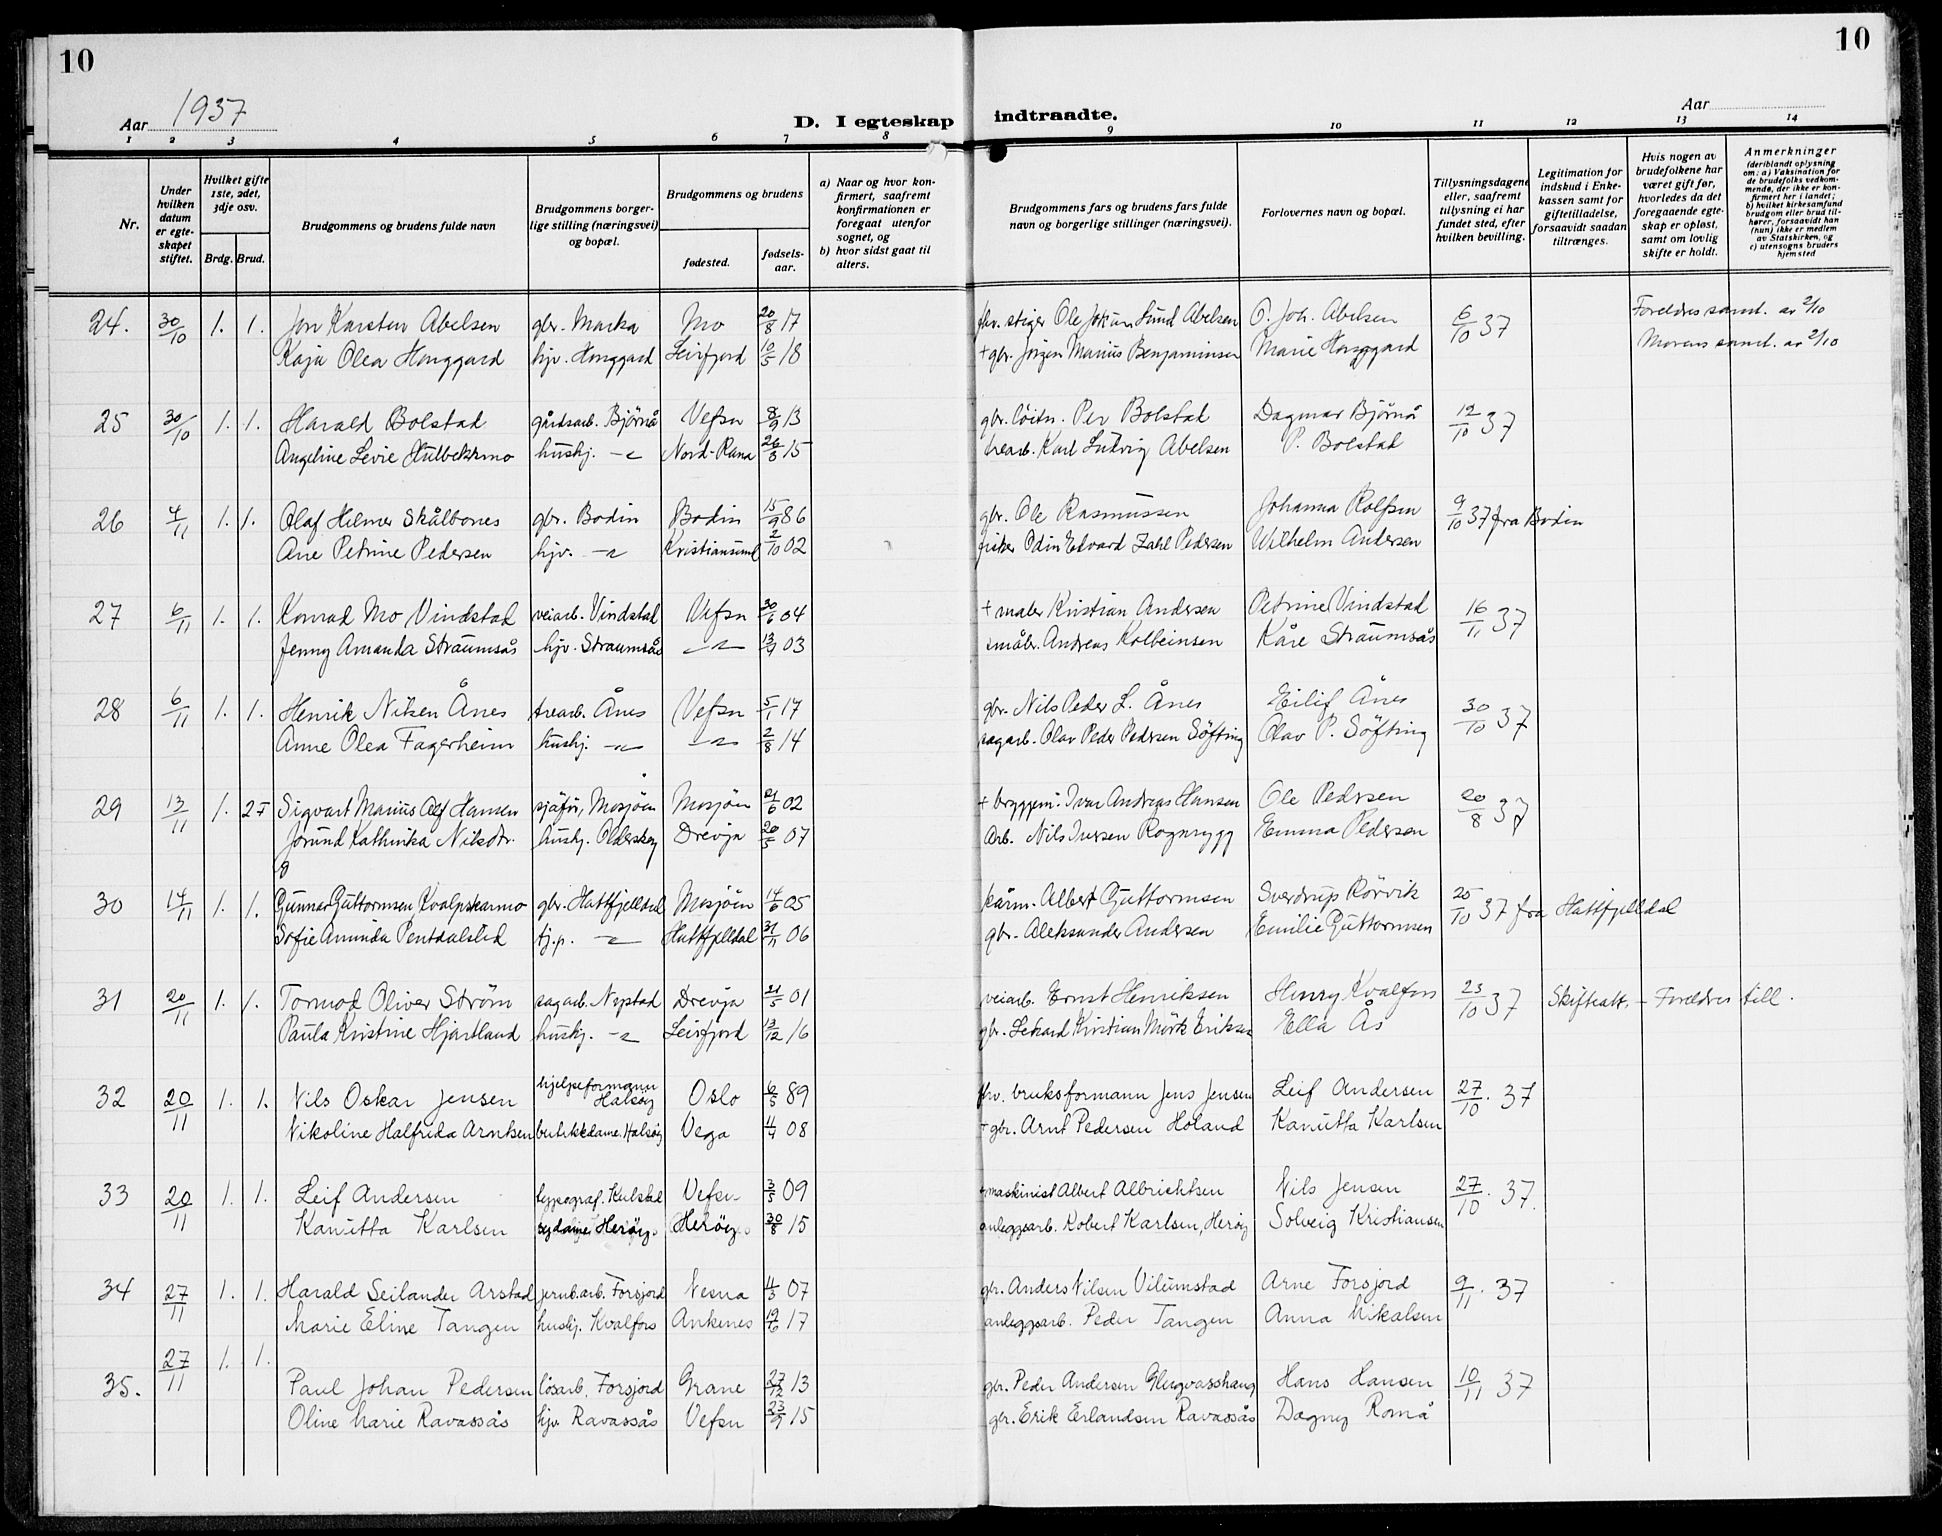 10
10
Aar 1937
D. I egteskap indtraadte.
Aar
1 2 3 4 5 6 7 8 9 10 11 12 13 14
Nr.
Under hvilken datum er egteskapet stiftet.
Hvilket gifte 1ste, 2det, 3dje osv.
Brdg. Brud.
Brudgommens og brudens fulde navn
Brudgommens borgerlige stilling (næringsvei) og bopæl.
Brudgommens og brudens
fødested.
fødselsaar.
a) Naar og hvor konfirmert, saafremt konfirmationen er foregaat utenfor sognet, og
b) hvor sidst gaat til alters.
Brudgommens fars og brudens fars fulde navn og borgerlige stillinger (næringsvei).
Forlovernes navn og bopæl.
Tillysningsdagene eller, saafremt tillysning ei har fundet sted, efter hvilken bevilling.
Legitimation for indskud i Enkekassen samt for giftetilladelse, forsaavidt saadan tiltrænges.
Hvis nogen av brudefolkene har været gift før, hvorledes da det foregaaende egteskap er opløst, samt om lovlig skifte er holdt.
Anmerkninger
(deriblandt oplysning om: a) Vaksination for de brudefolks vedkommende, der ikke er konfirmert her i landet; b) hvilket kirkesamfund brudgom eller brud tilhører, forsaavidt han (hun) ikke er medlem av Statskirken, og c) utensogns bruders hjemsted
24. 30/10 1. 1. Jon Karsten Abelsen gbr. Marka Mo 20/8 17 fhv. stiger Ole Johan Lund Abelsen O. Joh. Abelsen 6/10 37 Foreldres samt. av 2/10
Kaja Olea Honggard hjv. Honggard Leirfjord 10/5 18 + gbr. Jørgen Marius Benjaminsen Marie Honggard Morens samt. av 2/10
25 30/10 1. 1. Harald Bolstad gårdsarb. Bjørnå Vefsn 8/9 13 gbr. løitn. Per Bolstad Dagmar Bjørnå 12/10 37
Angeline Levie Hulbekkmo hushj. -"- Nord-Rana 15 trearb. Karl Ludvig Abelsen P. Bolstad
26 4/11 1. 1. Olaf Helmer Skålbones gbr. Bodin Bodin 15/9 86 gbr. Ole Rasmussen Johanna Rolfsen 9/10 37 fra Bodin
Ane Petrine Pedersen hjv. -"- Kristiansund 2/10 02 fisker Odin Edvard Zahl Pedersen Wilhelm Andersen
27 6/11 1. 1. Konrad Mo Vindstad veiarb. Vindstad Vefsn 30/6 04 + maler Kristian Andersen Petrine Vindstad 16/11 37
Jenny Amanda Straumsås hjv. Straumsås -"- 03 småbr. Andreas Kolbeinsen Kåre Straumsås
28 6/11 1. 1. Henrik Nilsen Ånes trearb. Ånes Vefsn 5/1 17 gbr. Nils Peder L. Ånes Eilif Ånes 30/10 37
Anne Olea Fagerheim hushj. -"- -"- 2/8 14 sagarb. Olav Peder Pedersen Söfting Olav P. Söfting
29 13/11 1. 2 Sigvart Marius Alf Hansen sjåfør, Mosjøen Mosjøen 21/6 02 + bryggem. Ivar Andreas Hansen Ole Pedersen 20/8 37
Jørund Kathinka Nilsdtr. hushj. Olderskog Drevja 20/5 07 Arb. Nils Iversen Rognrygg Emma Pedersen
30 14/11 1. 1. Gunnar Guttormsen Kvalpskarmo gbr. Hattfjelldal Mosjöen 14/6 05 Albert Guttormsen Sverdrup Rörvik 25/10 37 fra Hattfjelldal
Sofie Aminda Pantdalslid tj.p. -"- Hattfjelldal 06 gbr. Aleksander Andersen Emilie Guttormsen
31 20/11 1. 1. Tormod Oliver Strøm sagarb. Nystad Drevja 21/5 01 veiarb. Ernst Henriksen Henry Kvalfors 23/10 37 Skifteatt. - Foreldres till.
Paula Kristine Hjartland hushj. -"- Leirfjord 13/12 16 gbr. Kristian Mørk Eriksen Ella Ås
32 20/11 1. 1. Nils Oskar Jensen hjelpeformann Halsøy Oslo 6/5 89 fhv. bruksformann Jens Jensen Leif Andersen 27/10. 37
Nikoline Halfrida Arntsen butikkdame. Halsøy Vega 08 + gbr. Arnt Pedersen Holand Kanutta Karlsen
33 20/11 1. 1. Leif Andersen typograf. Kulstad Vefsn 3/5 09 + maskinist Albert Albrichtsen Nils Jensen 27/10. 37.
Kanutta Karlsen sydame Herøy. Herøy. 30/8 15 anleggsarb. Robert Karlsen, Herøy Solveig Kristiansen
34 27/11 1. 1. Harald Seilander Arstad jernb.arb. Forsjord Nesna 07 gbr. Anders Nilsen Arne Forsjord 9/11. 37
Marie Eline Tangen hushj. Kvalfors Ankenes 19/6 17 anleggsarb. Peder Tangen Anna Mikalsen
35. 27/11 1. 1. Paul Johan Pedersen lösarb. Forsjord Grane 27/12 13 gbr. Peder Andersen Hans Hansen 10/11 37
Oline Marie Ravassås hjv. Ravassås Vefsn 23/9 15 gbr. Erik Erlandsen Ravassås Dagny Romå